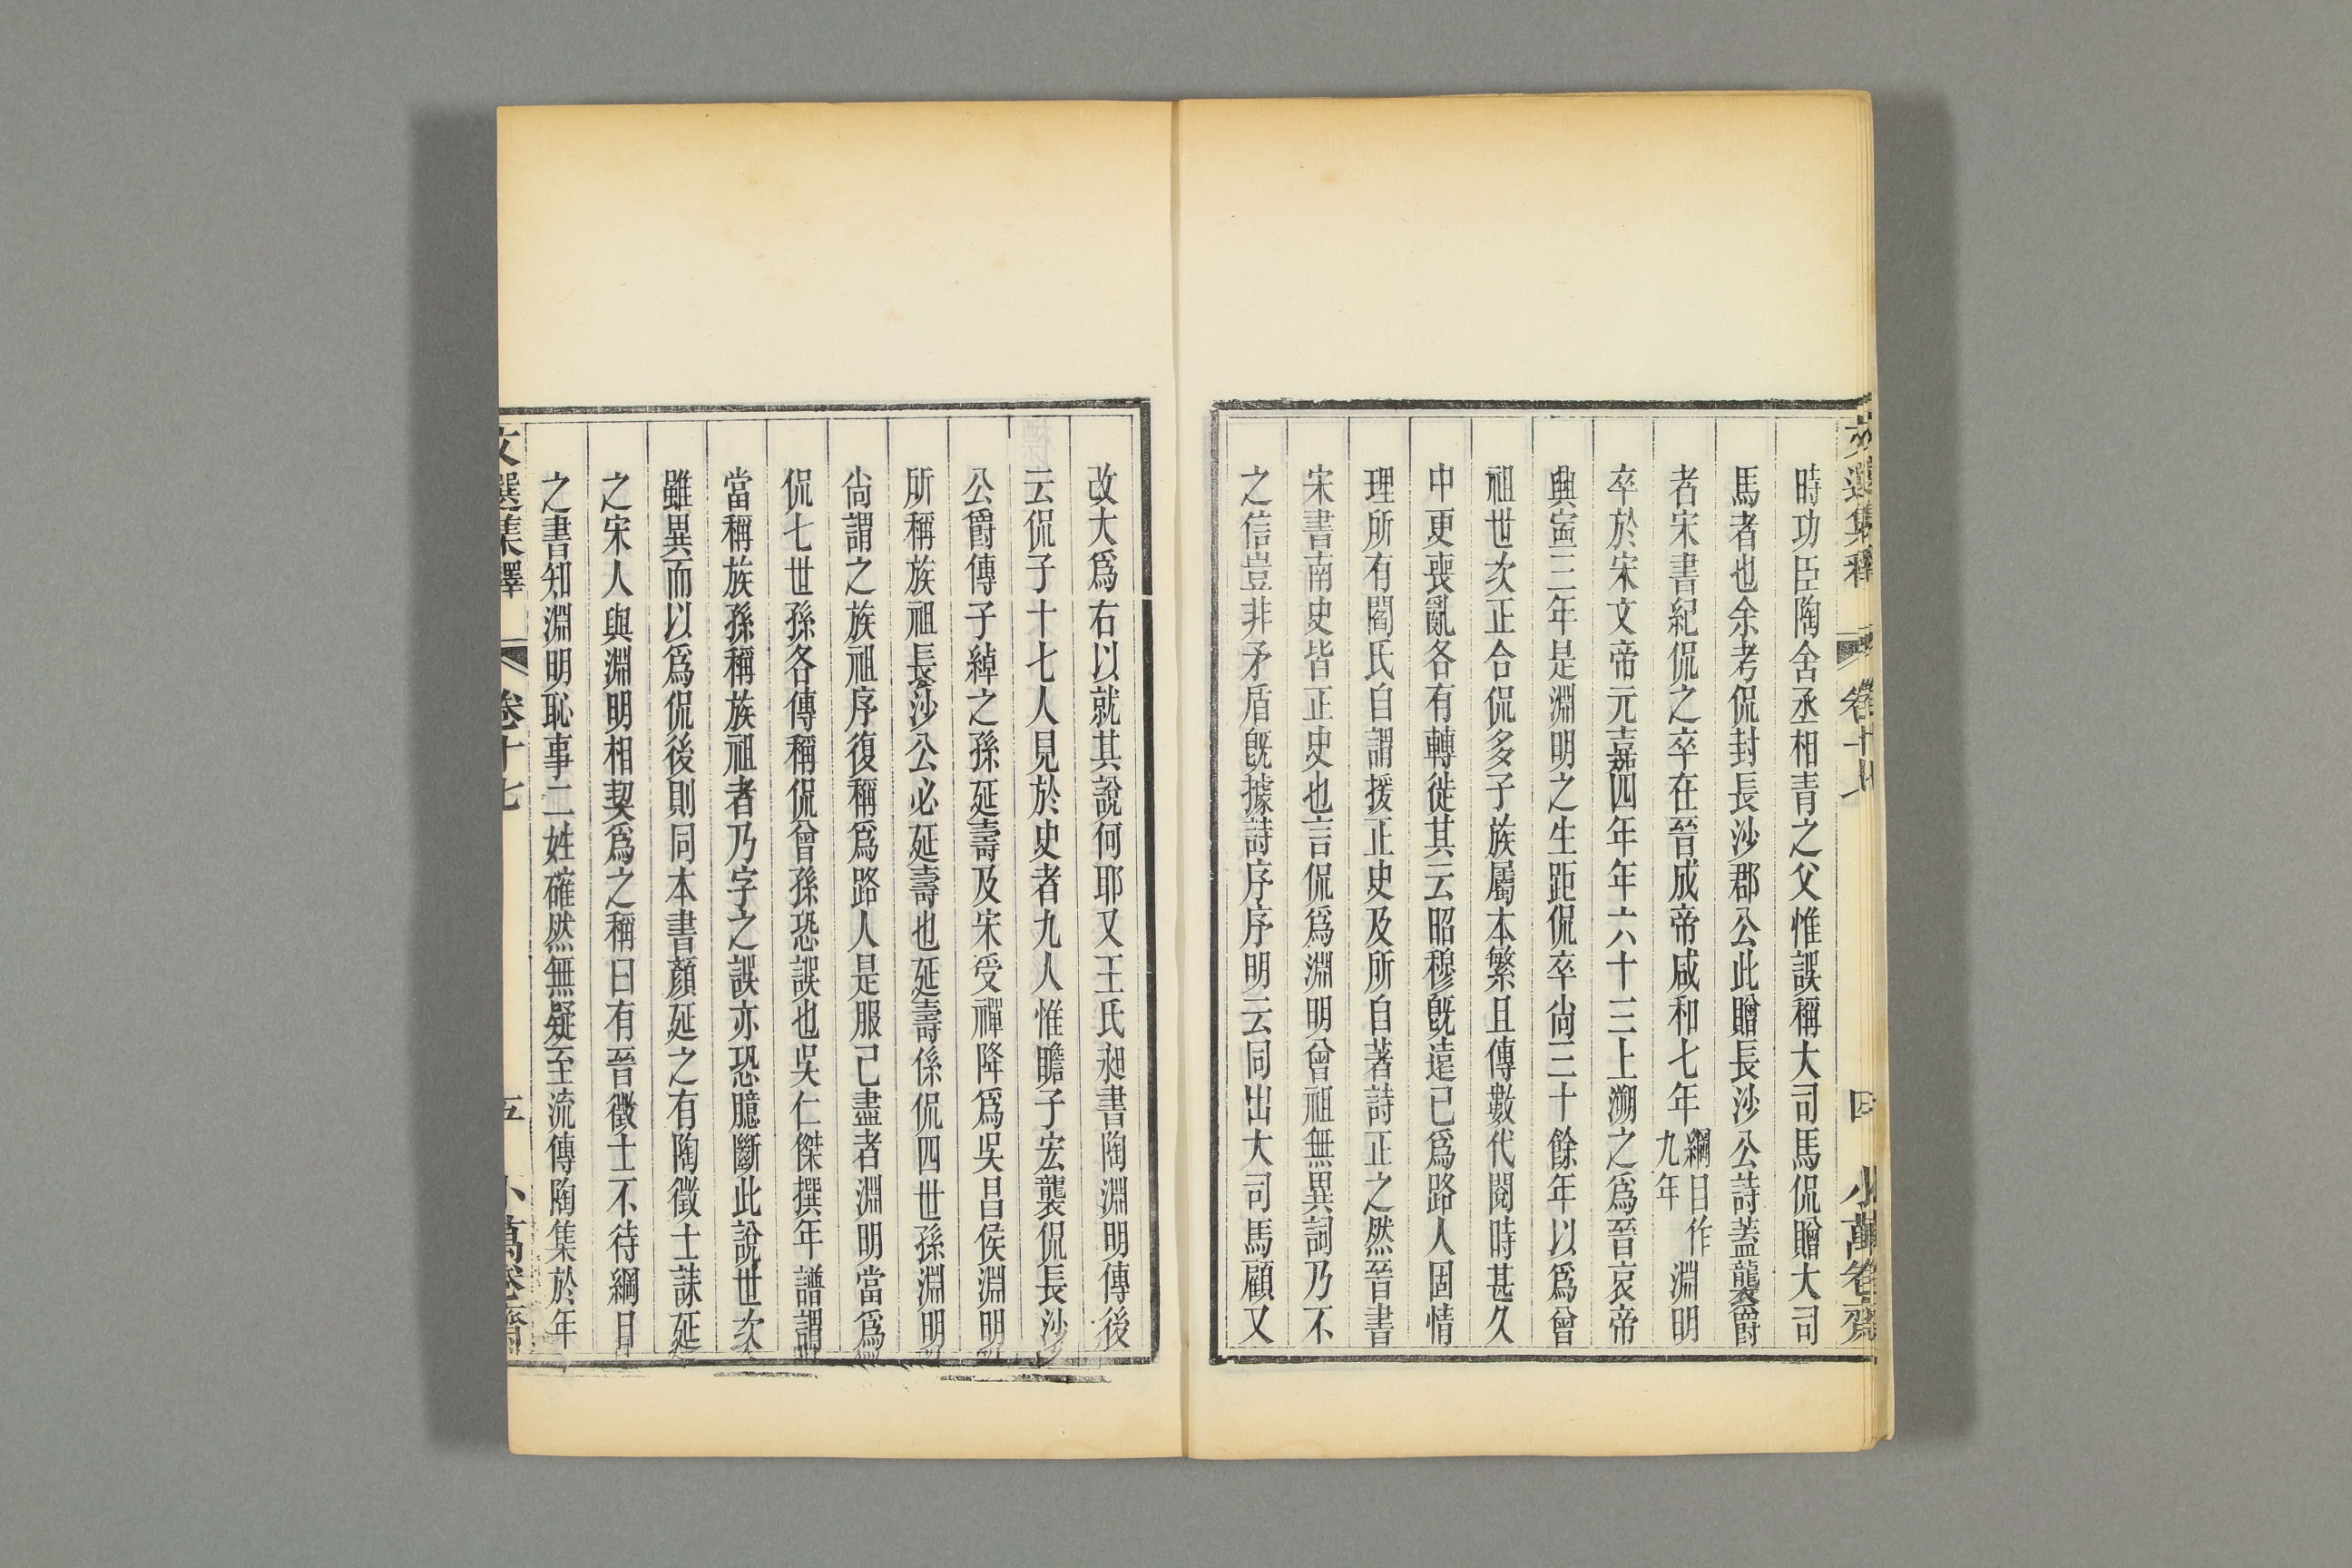 文選集釋 卷十七 四 小萬卷齋
時功臣陶舍丞相青之父惟誤稱大司馬侃贈大司
馬者也余考侃封長沙郡公此贈長沙公詩蓋襲爵
者宋書紀侃之卒在晉成帝咸和七年綱目作九年淵明
卒於宋文帝元嘉四年年六十三上溯之爲晉哀帝
興寍三年是淵明之生距侃卒尙三十餘年以爲曾
祖世次正合侃多子族屬本繁且傳數代閱時甚久
中更喪亂各有轉徙其云昭穆旣遠已爲路人固情
理所有閻氏自謂援正史及所自著詩正之然晉書
宋書南史皆正史也言侃爲淵明曾祖無異詞乃不
之信豈非矛盾旣據詩序序明云同出大司馬顧又
改大爲右以就其說何耶又王氏昶書陶淵明傳後
云侃子十七人見於史者九人惟瞻子宏襲侃長沙
公爵傳子綽之孫延壽及宋受禪降爲吳昌侯淵明
所稱族祖長沙公必延壽也延壽係侃四世孫淵明
尙謂之族祖序復稱爲路人是服己盡者淵明當爲
侃七世孫各傳稱侃曾孫恐誤也吳仁傑撰年譜謂
當稱族孫稱族祖者乃字之誤亦恐臆斷此說世次
雖異而以爲侃後則同本書顏延之有陶徵士誄延
之宋人與淵明相契爲之稱曰有晉徵士不待綱目
之書知淵明恥事二姓確然無疑至流傳陶集於年
文選集釋 卷十七 五 小萬卷齋